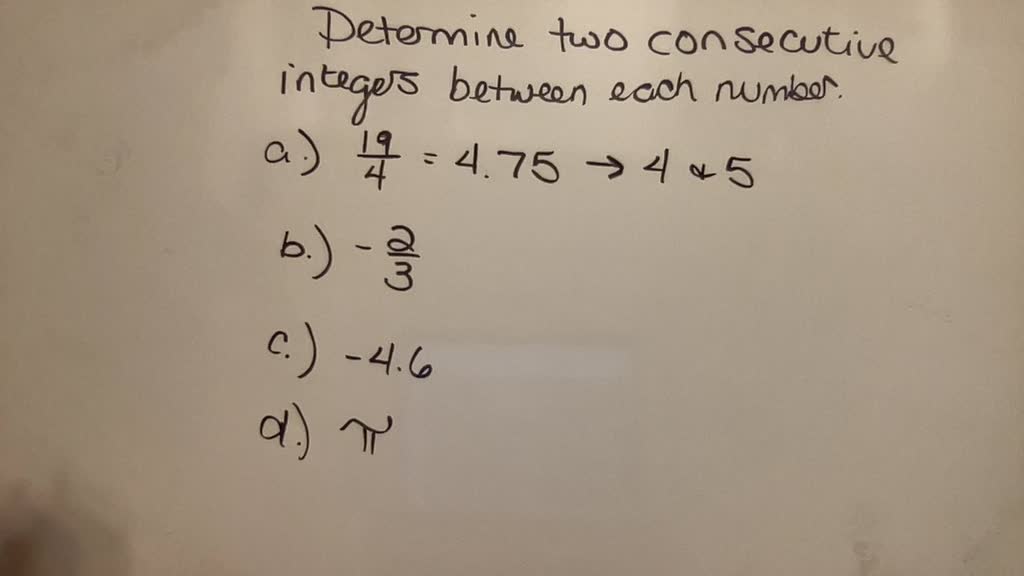 Determine two consecutive
integers between each number.
a.) 19/4 = 4.75 → 4 & 5
b.) - 2/3
c.) -4.6
d.) π